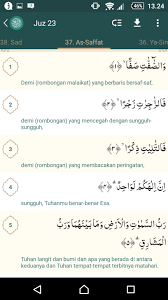 13.24
Juz 23
38. Sad
37. As-Saffat
36. Ya-Si
وَالصّٰٓفّٰتِ صَفًّا ﴿١﴾
1
Demi (rombongan malaikat) yang berbaris bersaf-saf.
فَالزّٰجِرٰتِ زَجْرًا ﴿٢﴾
2
Demi (rombongan) yang mencegah dengan sungguh-
sungguh,
فَالتّٰلِيٰتِ ذِكْرًا ﴿٣﴾
3
demi (rombongan) yang membacakan peringatan,
اِنَّ اِلٰهَكُمْ لَوَاحِدٌ ﴿٤﴾
4
sungguh, Tuhanmu benar-benar Esa.
رَبُّ السَّمٰوٰتِ وَالْاَرْضِ وَمَا بَيْنَهُمَا وَرَبُّ
5
الْمَشَارِقِ ﴿٥﴾
Tuhan langit dan bumi dan apa yang berada di antara
keduanya dan Tuhan tempat-tempat terbitnya matahari.